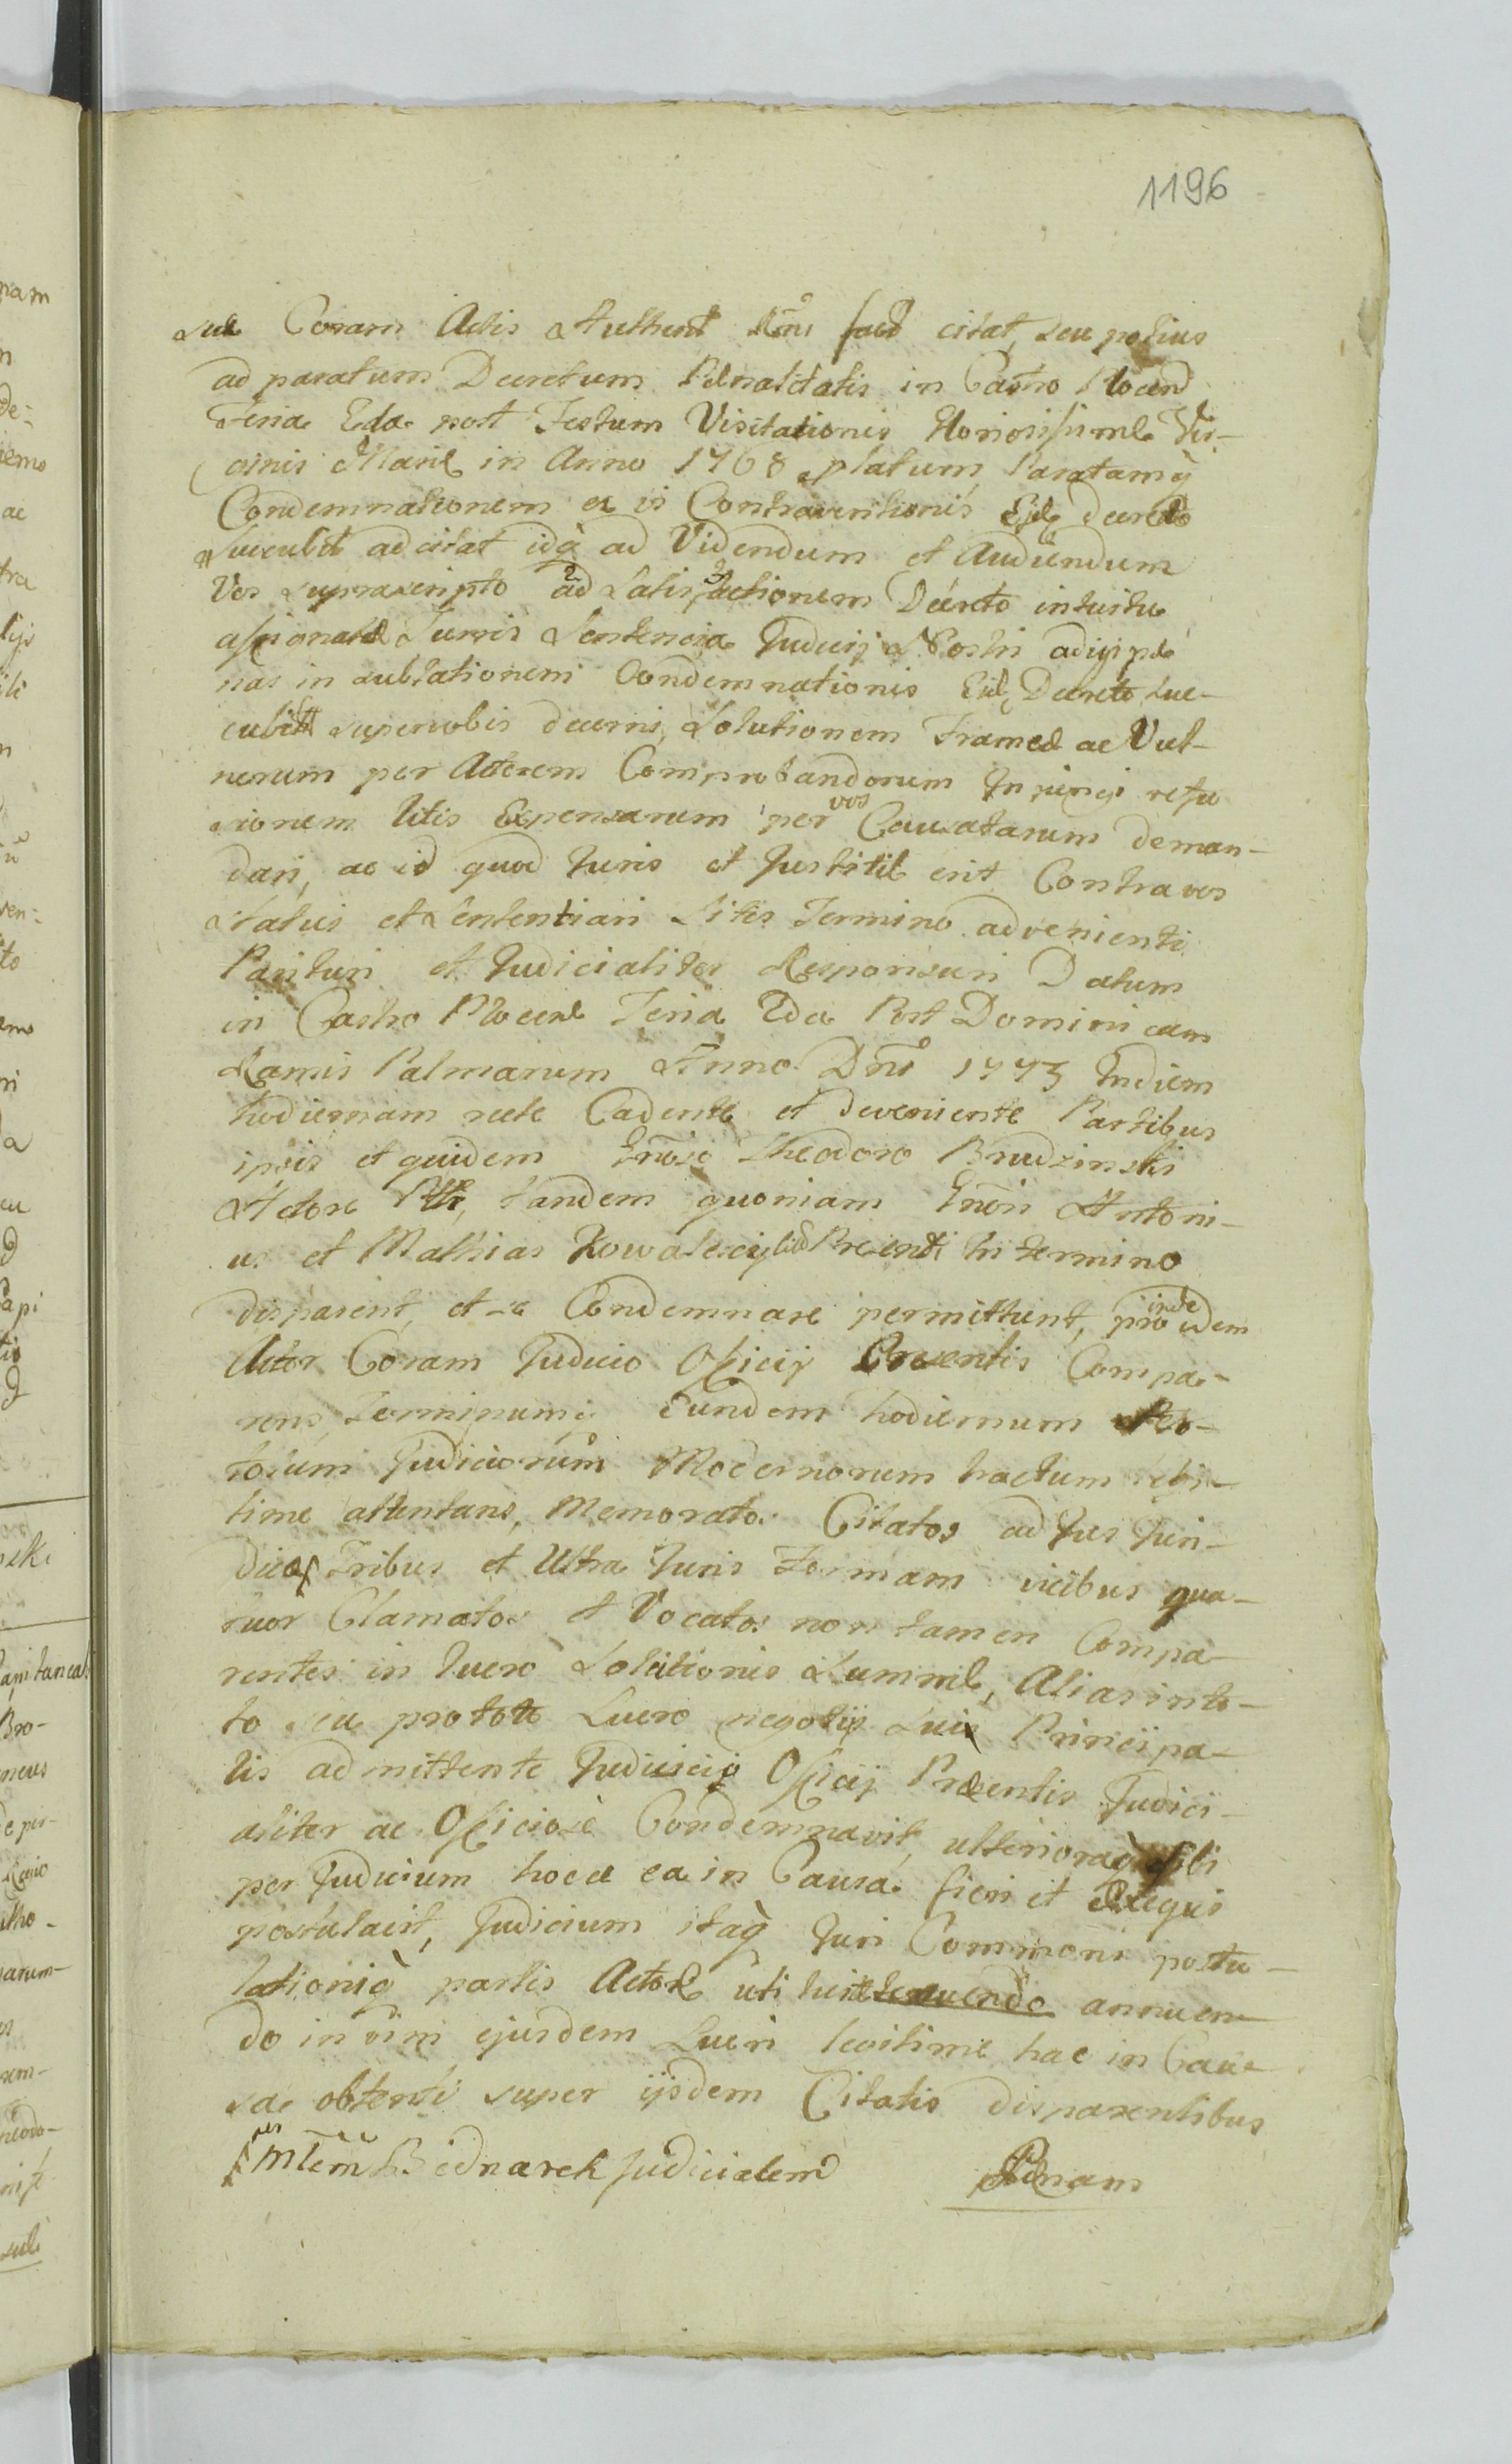 1196
suæ Coram Actis Authent Rmi fact citat, seu potius
ad paratum Decretum Pœnalitatis in Castro Plocen
Feria 2da post Festum Visitationis Gloriosissimæ Vir-
ginis Mariæ in Anno 1768 platum, Paratamq
Condemnationem ex vi Contraventionis Ejd decreto
succubit adcitat idq ad Videndum et Audiendum
Vos suprascripto ad satisfactionem Decreto intuitu
assignatæ Summis Sententia Judicij Nostri adigi pæ
nas in sublationem Condemnationis Eid Decreto suc-
cubitæ super vobis decerni, Solutionem Frameæ ac Vul-
nerum per Actorem Comprobandorum Injungi refu
sionem litis Expensarum per vos Causatarum deman-
dari, ac id quod Juris et Justitiæ erit Contra vos
statui et sententiari Sitis Termino advenienti
Parituri et Judicialiter Responsuri Datum
in Castro Plocen Feria 2da Post Dominicam
Ramis Palmarum Anno Dni 1773 Indiem
hodiernam recte Cadente et deveniente Partibus
ipsis et quidem Gnoso Theodoro Brudzinski
Actore tandem quoniam Gnosi Antoni-
us et Mathias Kowalescy Presenti in termino
disparent, et se Condemnare permittunt, proinde idem
Actor Coram Judicio Officij Præsentis Compa-
rens, Terminumq Eundem hodiernum Per-
totum Judiciorum Modernorum tractum legi-
time attentans, Memoratos Citatos ad Jus Juri-
dice Tribus et Ultra Juris Formam vicibus qua-
tuor Clamatos et Vocatos non tamen Compa-
rentes in lucro Solutionis Summæ, Alias in to-
to seu pro toto Lucro negotij sui Principa-
lis admittente Judicio Officij Præsentis Judici-
aliter ac Officiose Condemnavit, ulterioraq sibi
per Judicium hocce ea in Causa fieri et exequi
postulavit, Judicium itaq Juri Communi postu-
lationiq partis Actoræ uti annuen
do in vim ejusdem Lucri legitime hac in Cau-
sa obtenti super ijsdem Citatis disparentibus
per Mlem Bednarek Judicialem Pœnam